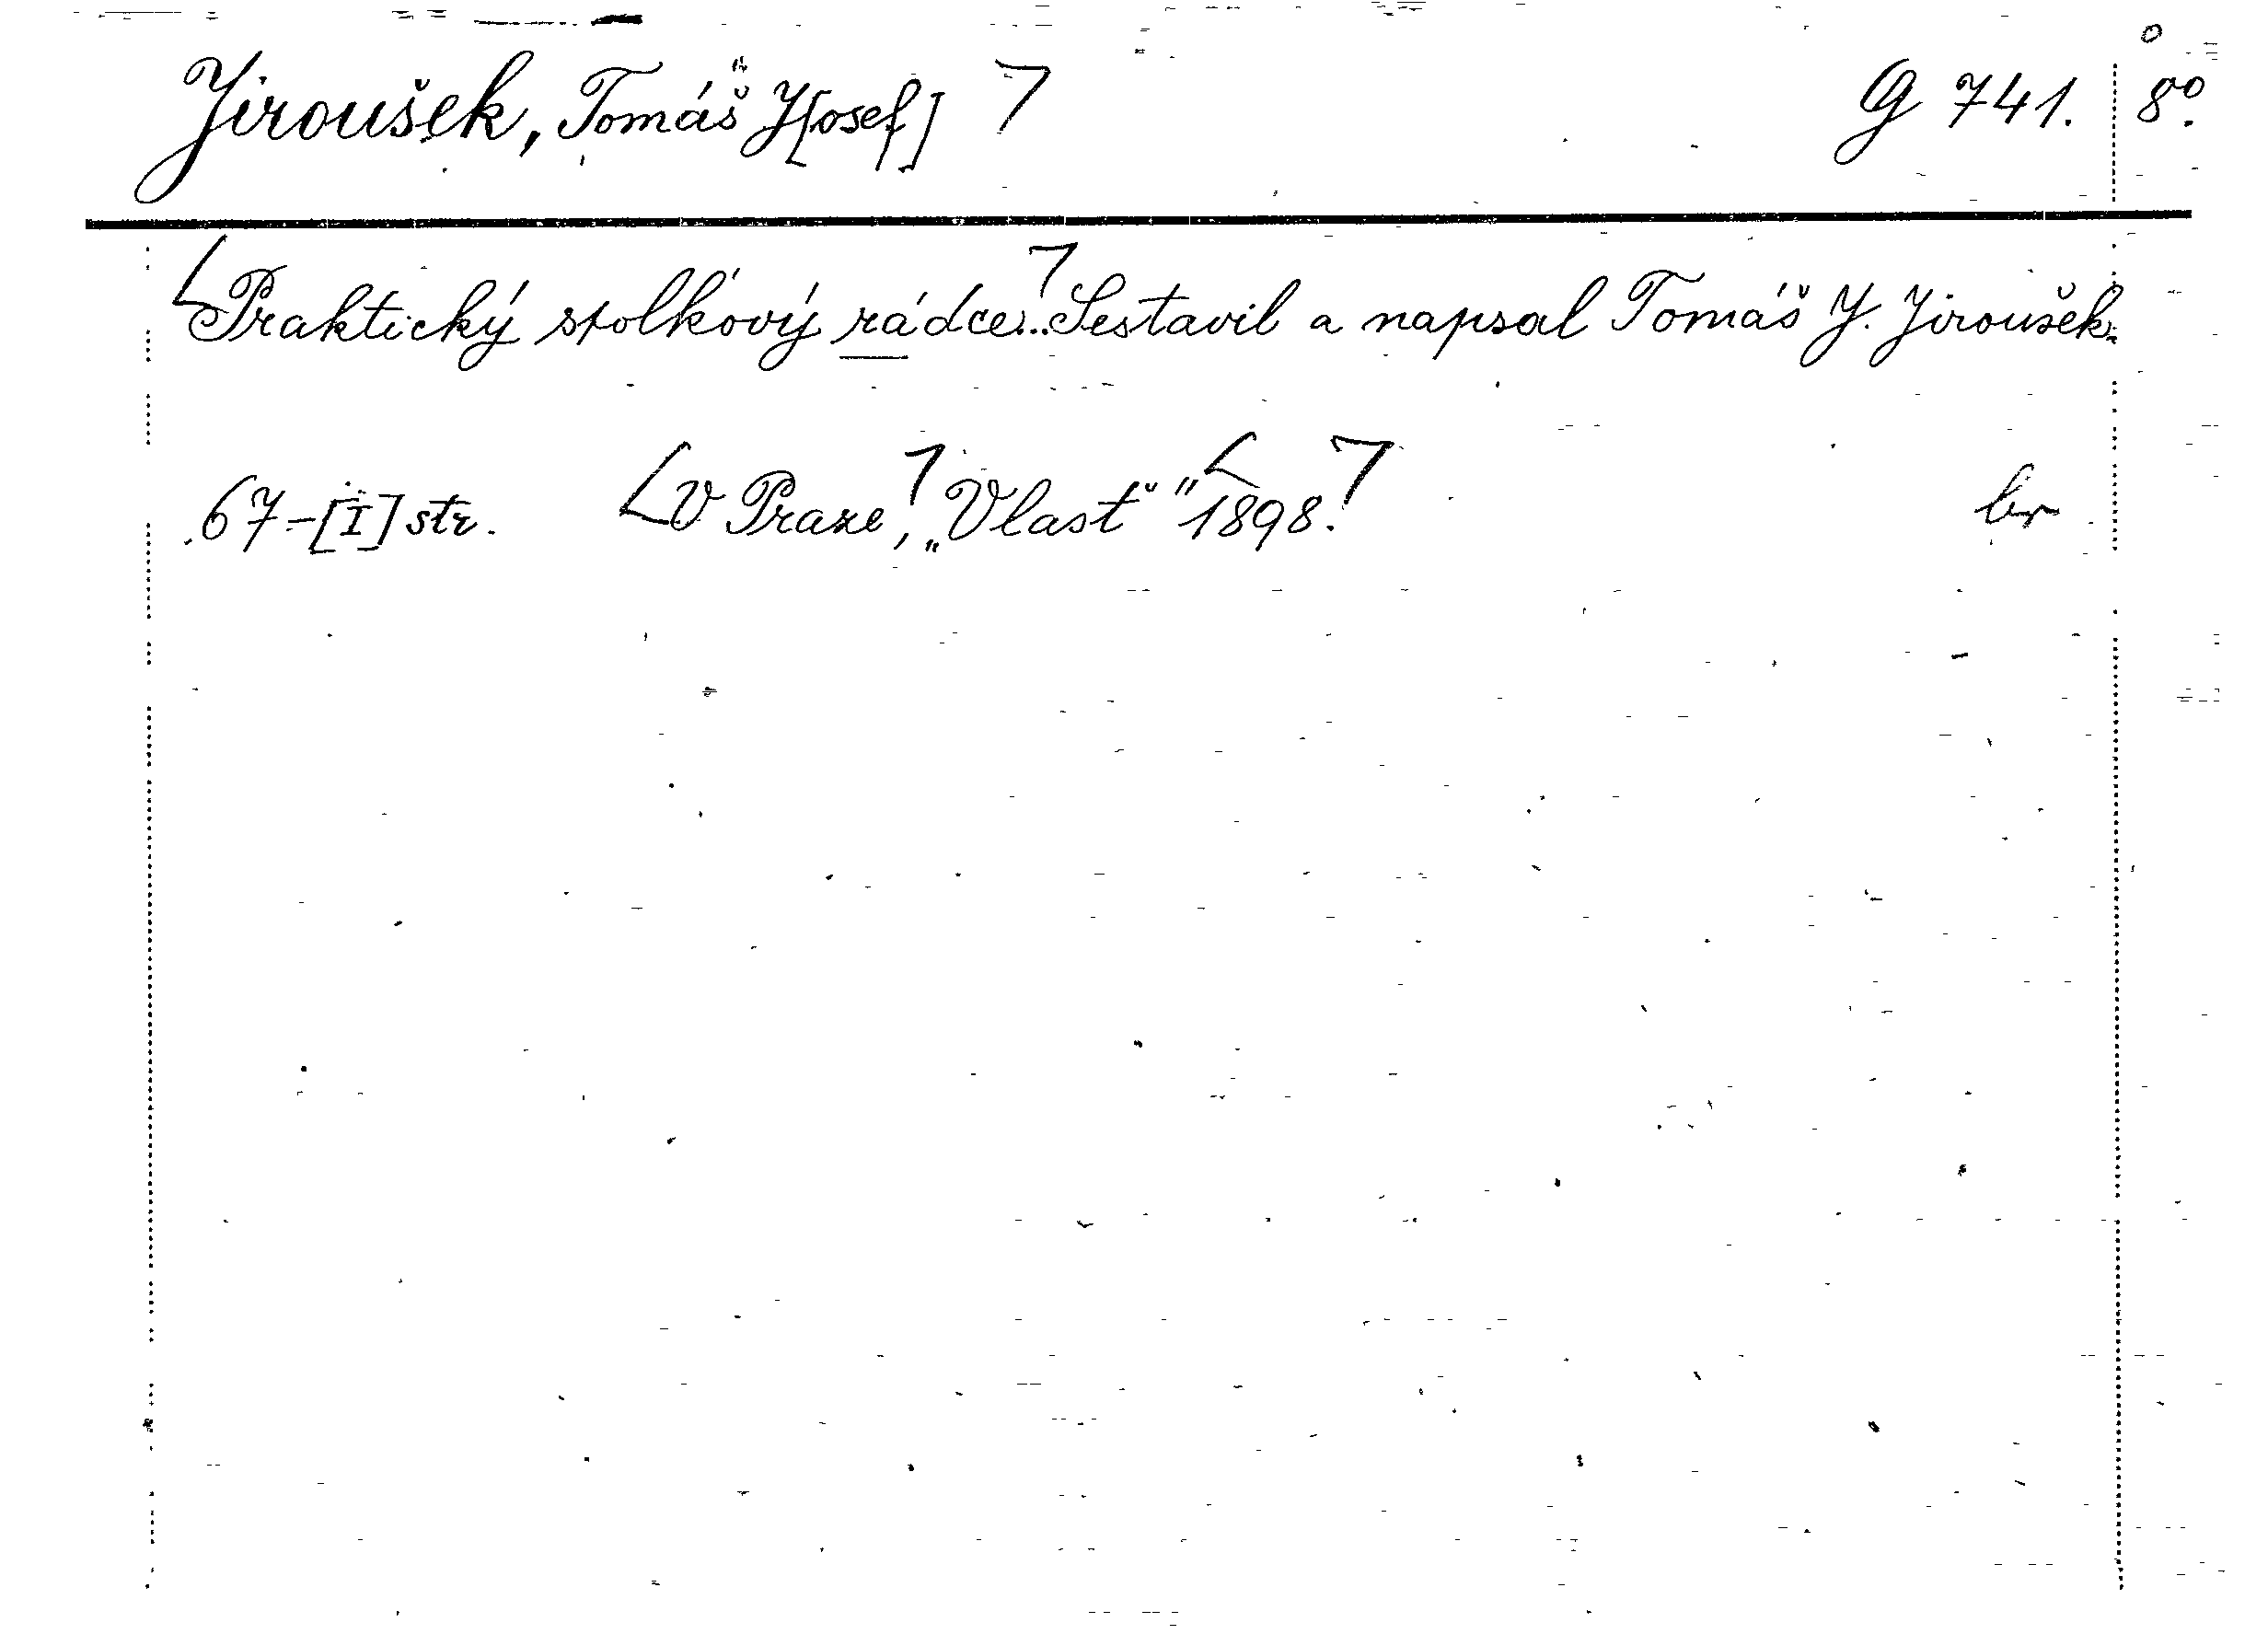 Jiroušek, Tomáš J[osef] G 741. 8°.
Praktický spolkový rádce... Sestavil a napsal Tomáš J. Jiroušek.
67-[I] str. V Praze, „Vlasť" 1898. br